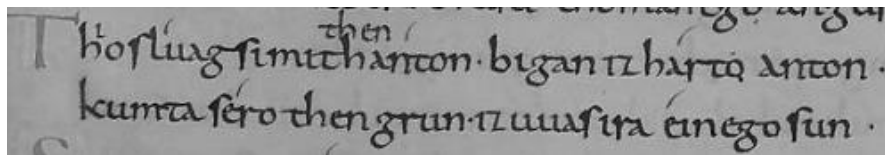 Tho slúag si mit then hánton · bigan iz hárto anton ·
kumta séro then grun · iz uuas ira éinego sun ·